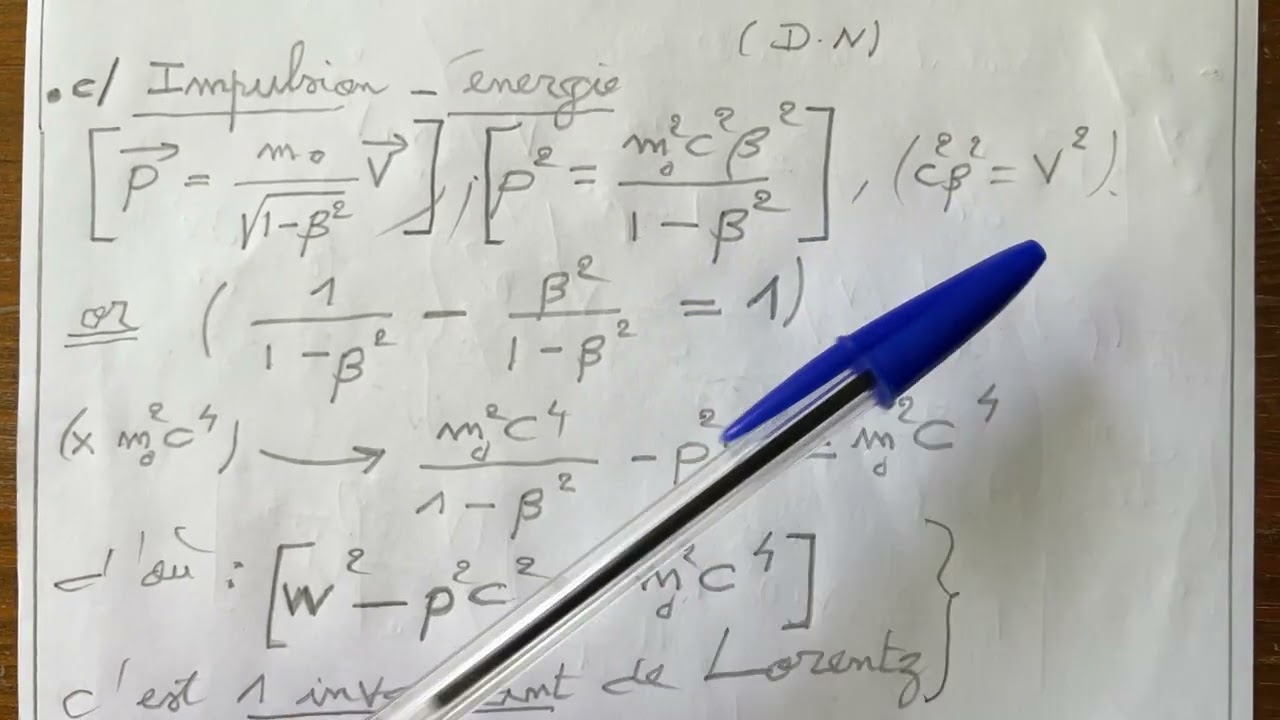 (D.N)
.c/ Impulsion - énergie
[p⃗ = m₀/√(1-β²) V⃗] ; [p² = m₀²c²β²/(1-β²)], (c²β² = V²).
or (1/(1-β²) - β²/(1-β²) = 1)
(x m₀²c⁴) → m₀²c⁴/(1-β²) - p² = m₀²c⁴
d'où : [W² - p²c² m₀²c⁴] }
c'est 1 de Lorentz